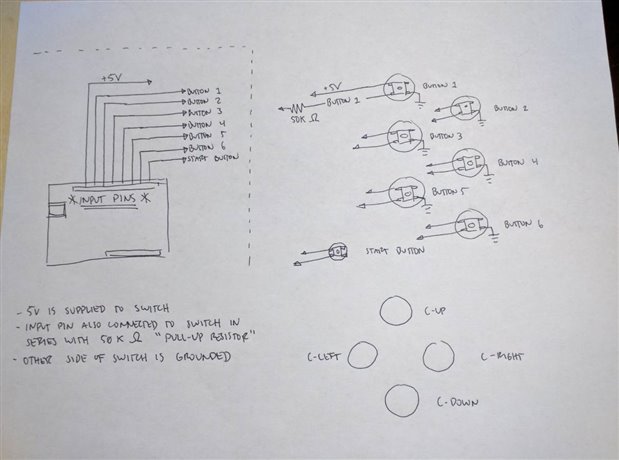 +5V
BUTTON 1
BUTTON 2
BUTTON 3
BUTTON 4
BUTTON 5
BUTTON 6
START BUTTON
* INPUT PINS *
+5V
BUTTON 1
BUTTON 1
50K Ω
BUTTON 2
BUTTON 3
BUTTON 4
BUTTON 5
BUTTON 6
START BUTTON
- 5V IS SUPPLIED TO SWITCH
- INPUT PIN ALSO CONNECTED TO SWITCH IN
SERIES WITH 50K Ω "PULL-UP RESISTOR"
- OTHER SIDE OF SWITCH IS GROUNDED
C-UP
C-LEFT
C-RIGHT
C-DOWN